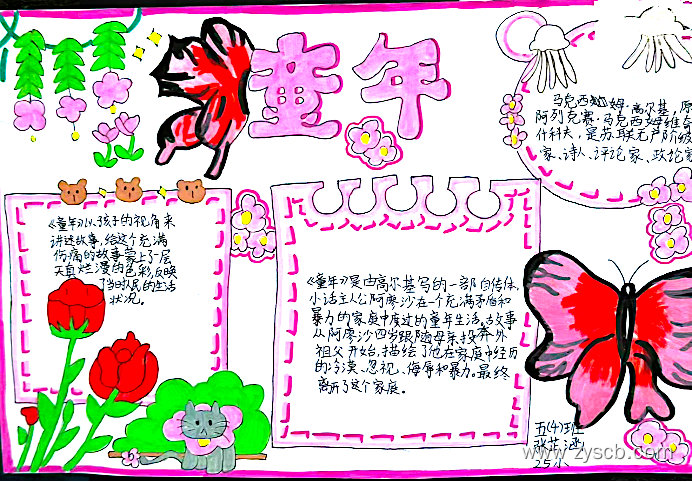 童年
马克西姆·高尔基,原
阿列克赛·马克西姆维奇
什科夫,是苏联无产阶级
家、诗人、评论家、政论家
《童年》以孩子的视角来
讲述故事,给这个充满
伤痛的故事蒙上了一层
天真烂漫的色彩,反映
了当时人民的生活
状况。
《童年》是由高尔基写的一部自传体
小话主人公阿廖沙在一个充满矛盾和
暴力的家庭中度过的童年生活。故事
从阿廖沙四岁跟随母亲投奔外
祖父开始,描绘了他在家庭中经历
的冷漠、忽视、侮辱和暴力。最终
离开了这个家庭。
五(4)班
张芷涵
25小
www.zyscb.com